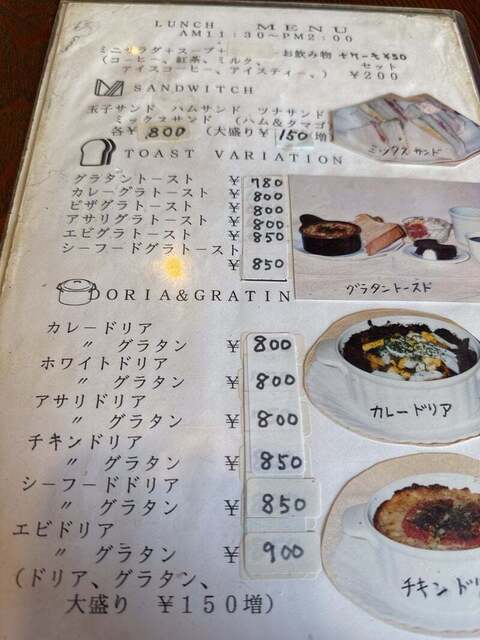 LUNCH MENU
AM11:30~PM2:00
ミニサラダ+スープ+ お飲み物 ¥50
(コーヒー、紅茶、ミルク、 セット
アイスコーヒー、アイスティー、) ¥200
SANDWITCH
玉子サンド ハムサンド ツナサンド
ミックスサンド (ハム&タマゴ
各¥800 (大盛り¥150増
ミックスサンド
TOAST VARIATION
グラタントースト ¥780
カレーグラトースト ¥800
ピザグラトースト ¥800
アサリグラトースト ¥800
エビグラトースト ¥850
シーフードグラトースト
¥850
グラタントースト
DORIA&GRATIN
カレードリア
〃 グラタン ¥800
ホワイトドリア
〃 グラタン ¥800
アサリドリア
〃 グラタン ¥800
チキンドリア
〃 グラタン ¥850
シーフードドリア
〃 グラタン ¥850
エビドリア
〃 グラタン ¥900
(ドリア、グラタン、
大盛り ¥150増)
カレードリア
チキンドリ